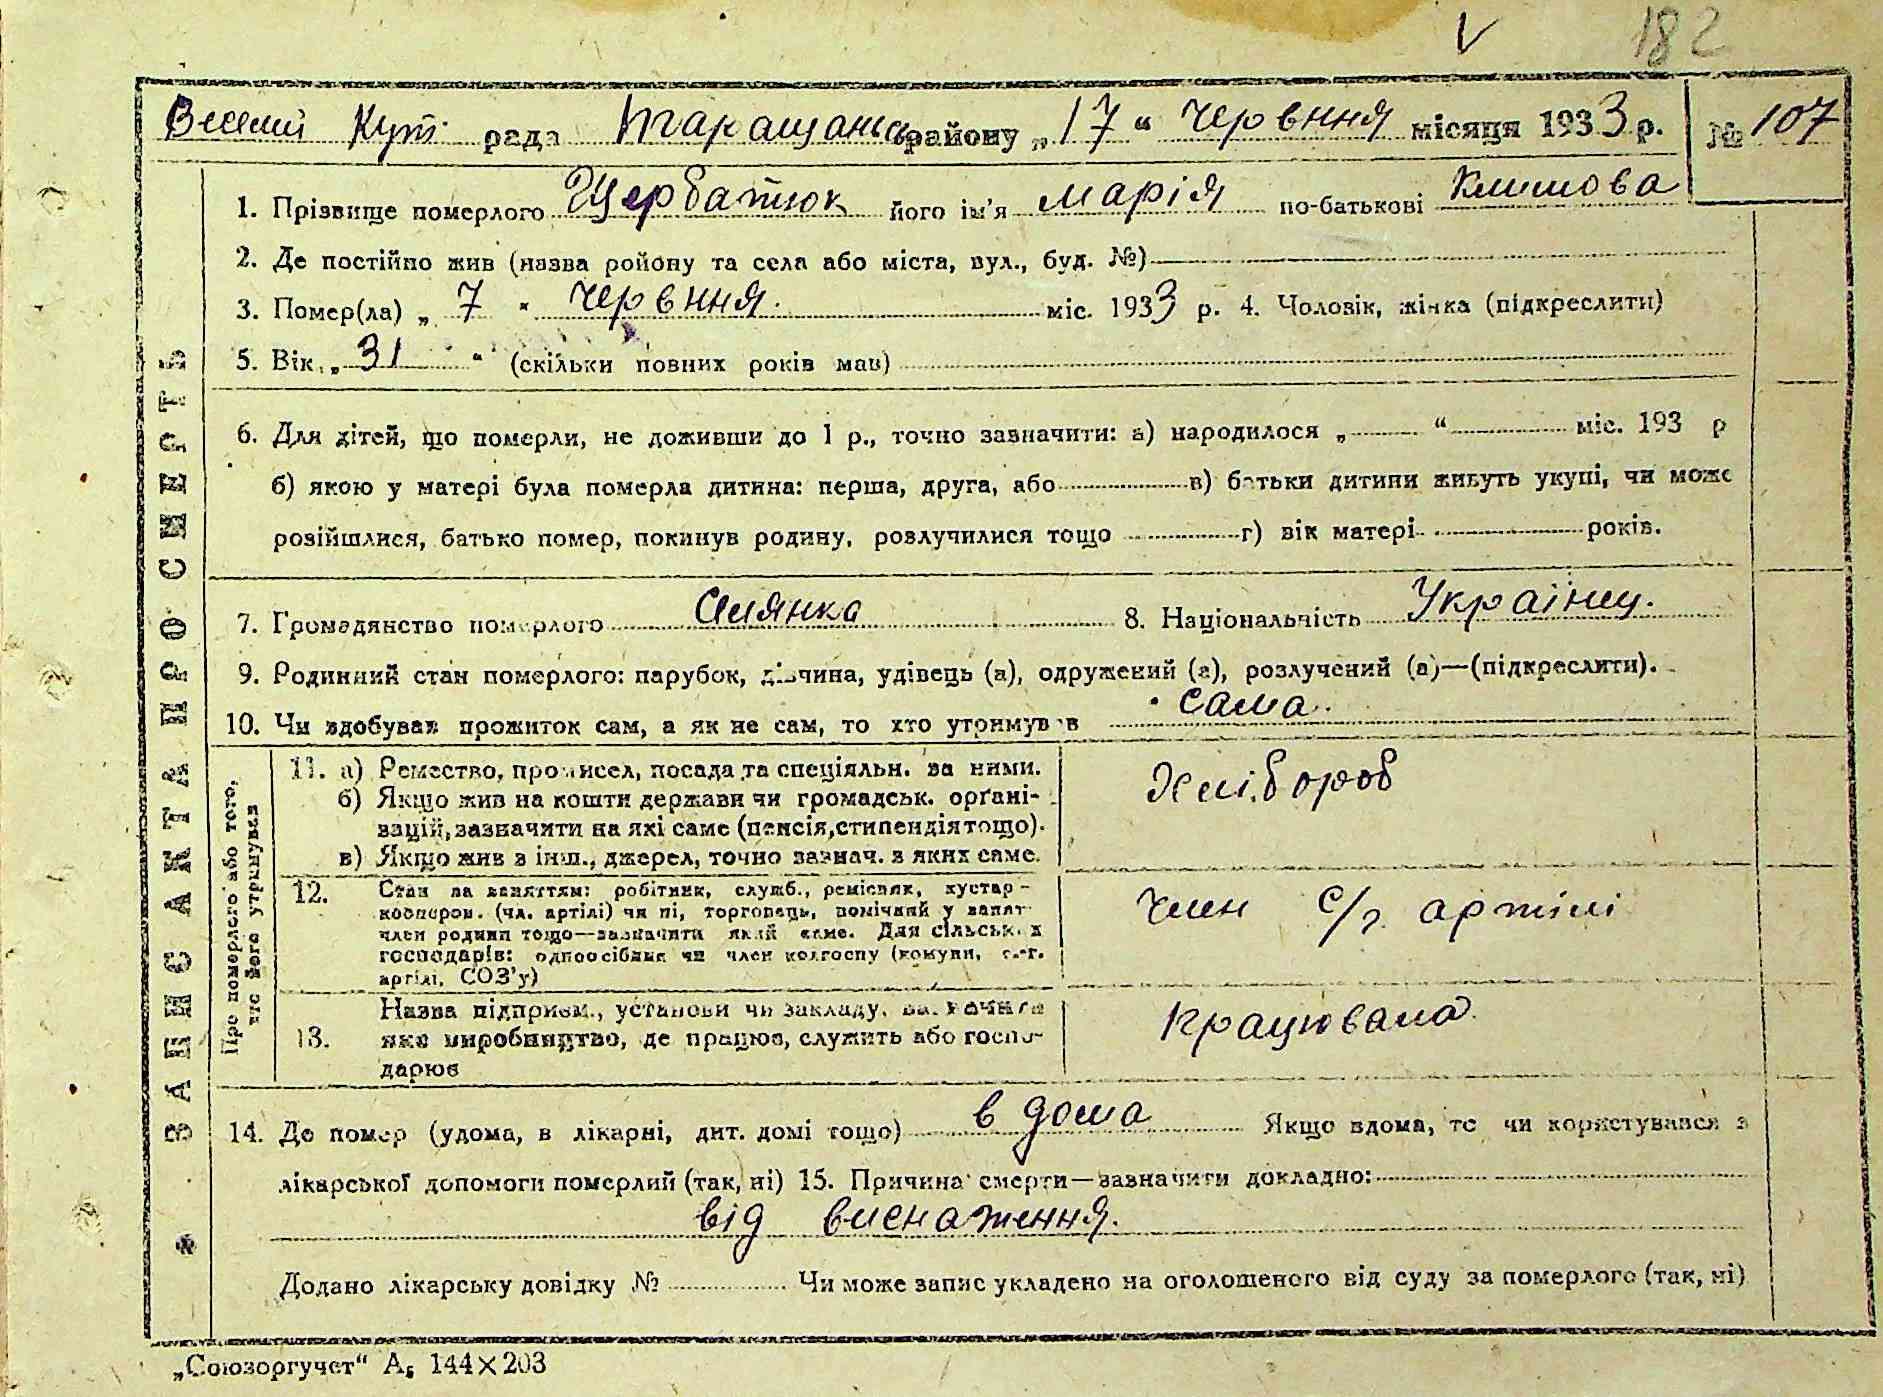 V 182
Веселий Кут рада Таращансь району „17“ червння місяця 1933 р. № 107
ЗАПИС АКТА ПРО СМЕРТЬ
1. Прізвище померлого Щербатюк його ім'я Марія по-батькові Климова
2. Де постійно жив (назва ройону та села або міста, вул., буд. №)
3. Помер(ла) „ 7 “ червння. міс. 1933 р. 4. Чоловік, жінка (підкреслити)
5. Вік „ 31 “ (скільки повних років мав)
6. Для дітей, що померли, не доживши до 1 р., точно зазначити: а) народилося „ “ міс. 193 р
б) якою у матері була померла дитина: перша, друга, або в) батьки дитини живуть укупі, чи може
розійшлися, батько помер, покинув родину, розлучилися тощо г) вік матері років.
7. Громадянство померлого Силянка 8. Національність Українц.
9. Родинний стан померлого: парубок, дівчина, удівець (а), одружений (а), розлучений (а)—(підкреслити).
10. Чи здобував прожиток сам, а як не сам, то хто утримував сама.
Про померлого або того, хто його утримував
11. а) Ремество, промисел, посада та спеціяльн. за ними. Хлібороб
б) Якщо жив на кошти держави чи громадськ. орґані-
зацій, зазначити на які саме (пенсія, стипендія тощо).
в) Якщо жив з інш., джерел, точно зазнач. з яких саме.
12. Стан за заняттям: робітник, служб., ремісник, кустар - член с/г. артілі
кооперов. (чл. артілі) чи ні, торговець, помічний у занят
член родини тощо—зазначити який саме. Для сільськ. х
господарів: одноосібник чи член колгоспу (комуни, с.-г.
артілі, СОЗ'у)
13. Назва підприєм., установи чи закладу, зазначити Крацювала
яке виробництво, де працює, служить або госпо-
дарює
14. Де помер (удома, в лікарні, дит. домі тощо) в дома Якщо вдома, то чи користувався з
лікарської допомоги померлий (так, ні) 15. Причина смерти—зазначити докладно:
від виснаження.
Додано лікарську довідку № Чи може запис укладено на оголошеного від суду за померлого (так, ні)
„Союзоргучет“ А₅ 144×203